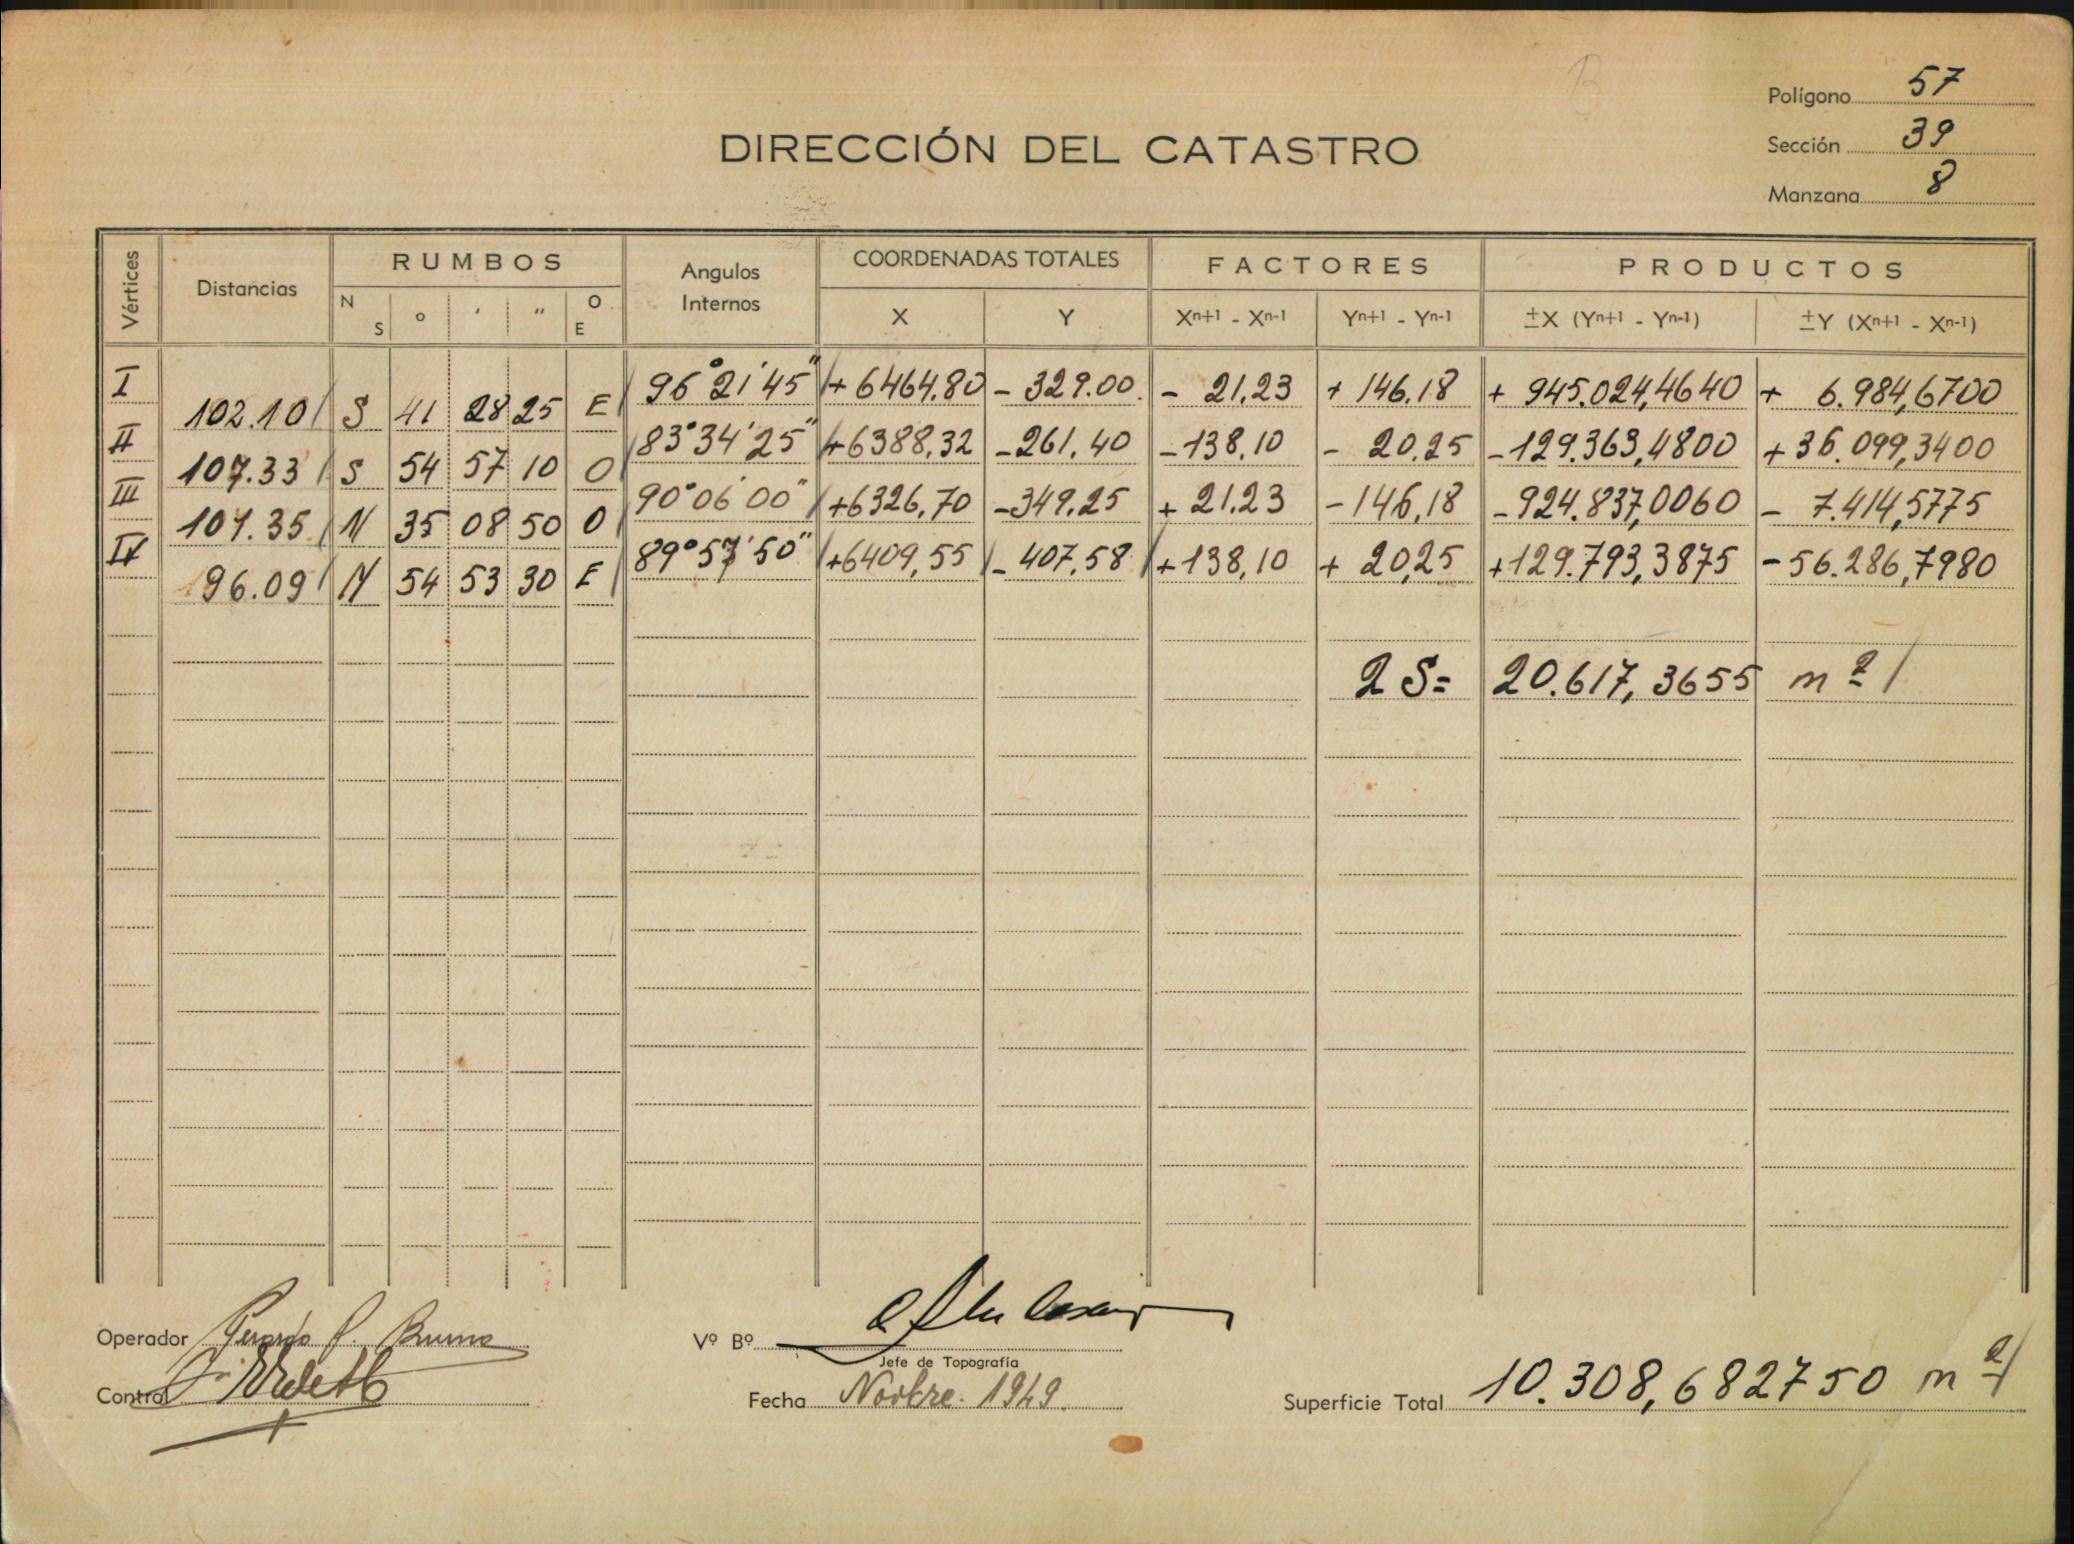 Polígono 57
DIRECCIÓN DEL CATASTRO
Sección 39
Manzana 8
Vértices Distancias RUMBOS Angulos Internos COORDENADAS TOTALES FACTORES PRODUCTOS
N S o ' " O E X Y Xn+1 - Xn-1 Yn+1 - Yn-1 ±X (Yn+1 - Yn-1) ±Y (Xn+1 - Xn-1)
I 96°21'45" + 6464.80 - 329.00 - 21,23 + 146.18 + 945.024,4640 + 6.984,6700
102.10 S 41 28 25 E
II 83°34'25" +6388,32 -261.40 -138,10 - 20.25 -129.363,4800 +36.099,3400
107.33 S 54 57 10 O
III 90°06'00" +6326,70 -349.25 + 21.23 -146,18 -924.837,0060 - 7.414,5775
101.35 N 35 08 50 O
IV 89°57'50" +6409,55 - 407.58 +138,10 + 20,25 +129.793,3875 -56.286,7980
96.09 N 54 53 30 E
2 S= 20.617,3655 m2
Operador Gerardo P. Bruno
Vº Bº
Jefe de Topografía
Control
Fecha Novbre. 1949.
Superficie Total 10.308,682750 m2